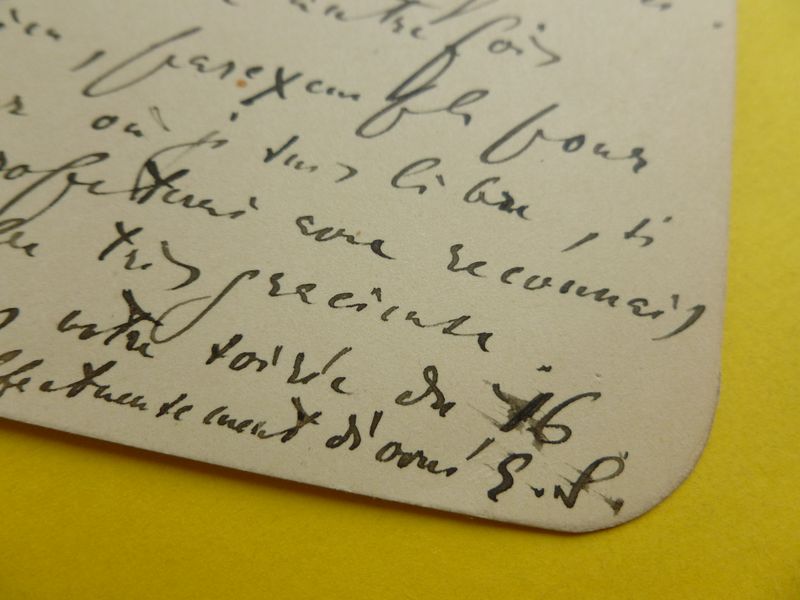 autre fois
, par exemple pour
où je suis libre, si
avec reconnais
très gracieuse
votre soirée du 16
affectueusement dévoué E.S.